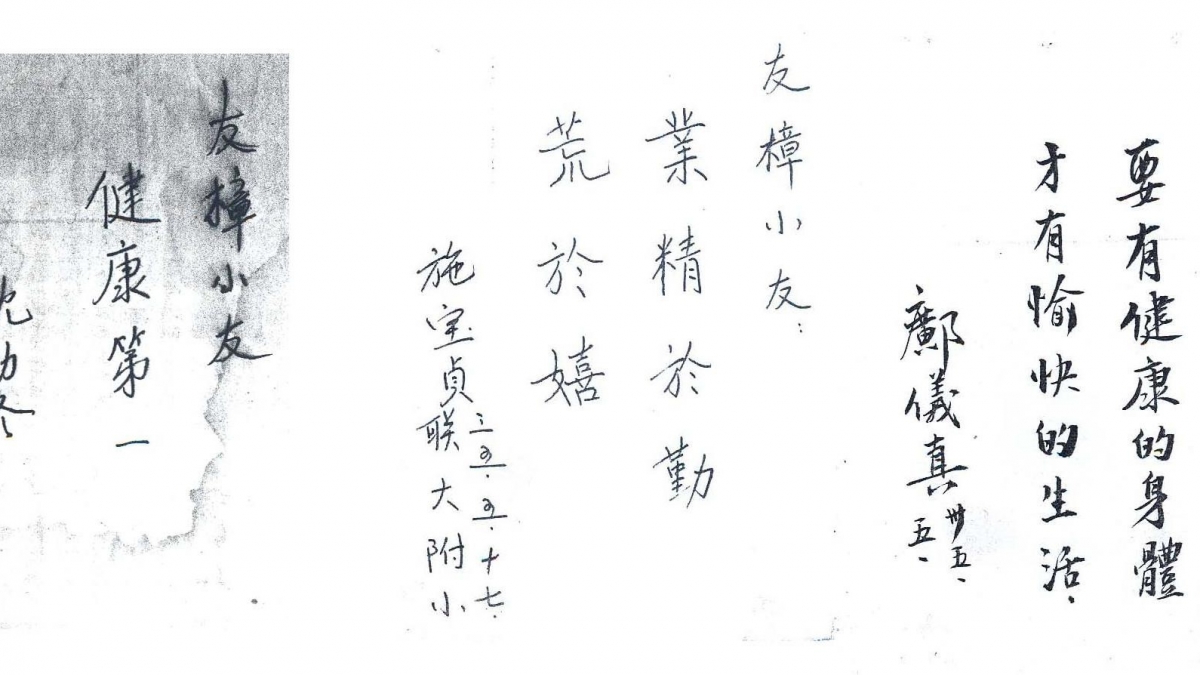 要有健康的身體
才有愉快的生活、
鄺儀真 卅五、五、
友樟小友：
業精於勤
荒於嬉
施宝貞 三五.五.十七.
联大附小
友樟小友
健康第一